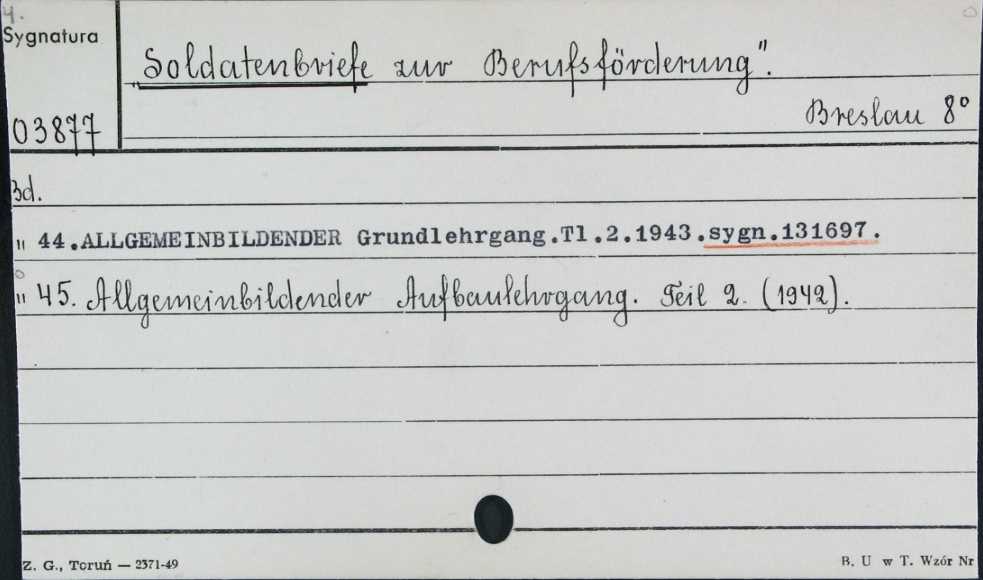 4.
Sygnatura
„Soldatenbriefe zur Berufsförderung".
Breslau 8°
03877
Bd.
" 44.ALLGEMEINBILDENDER Grundlehrgang.Tl.2.1943.sygn.131697.
" 45. Allgemeinbildender Aufbaulehrgang. Teil 2. (1942).
Z. G., Toruń — 2371-49
B. U w T. Wzór Nr